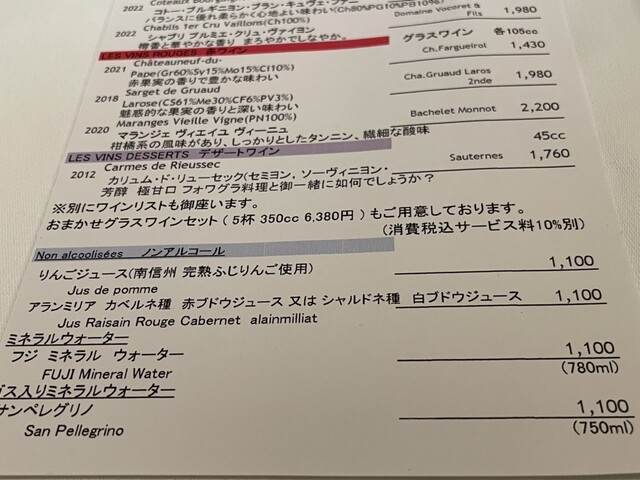 2022 Coteaux Bourguignon
コトー・ブルギニヨン・ブラン・キュヴェ・ファニー
バランスに優れ柔らかく心地よい味わい(Ch80%PG10%PB10%)
Domaine Vocoret & Fils 1,980
Chablis 1er Cru Vaillont(Ch100%)
2022 シャブリ プルミエ・クリュ・ヴァイヨン
樽香と華やかな香り まろやかでしなやか。
LES VINS ROUGES 赤ワイン グラスワイン 各105cc
Châteauneuf-du-
2021 Pape(Gr60%Sy15%Mo15%Ci10%) Ch.Fargueirol 1,430
赤果実の香りで豊かな味わい
Sarget de Gruaud
2018 Larose(CS61%Me30%CF6%PV3%) Cha.Gruaud Laros 2nde 1,980
魅惑的な果実の香りと深い味わい
Maranges Vieille Vigne(PN100%) Bachelet Monnot 2,200
2020 マランジェ ヴィエイユ ヴィーニュ
柑橘系の風味があり、しっかりとしたタンニン、繊細な酸味
LES VINS DESSERTS デザートワイン 45cc
Carmes de Rieussec Sauternes 1,760
2012 カリュム・ド・リューセック(セミヨン、ソーヴィニヨン・
芳醇 極甘口 フォワグラ料理と御一緒に如何でしょうか?
※別にワインリストも御座います。
おまかせグラスワインセット ( 5杯 350cc 6,380円 ) もご用意しております。
(消費税込サービス料10%別)
Non alcoolisées ノンアルコール
りんごジュース(南信州 完熟ふじりんご使用) 1,100
Jus de pomme
アランミリア カベルネ種 赤ブドウジュース 又は シャルドネ種 白ブドウジュース 1,100
Jus Raisain Rouge Cabernet alainmilliat
ミネラルウォーター
フジ ミネラル ウォーター 1,100
FUJI Mineral Water (780ml)
ガス入りミネラルウォーター
サンペレグリノ 1,100
San Pellegrino (750ml)